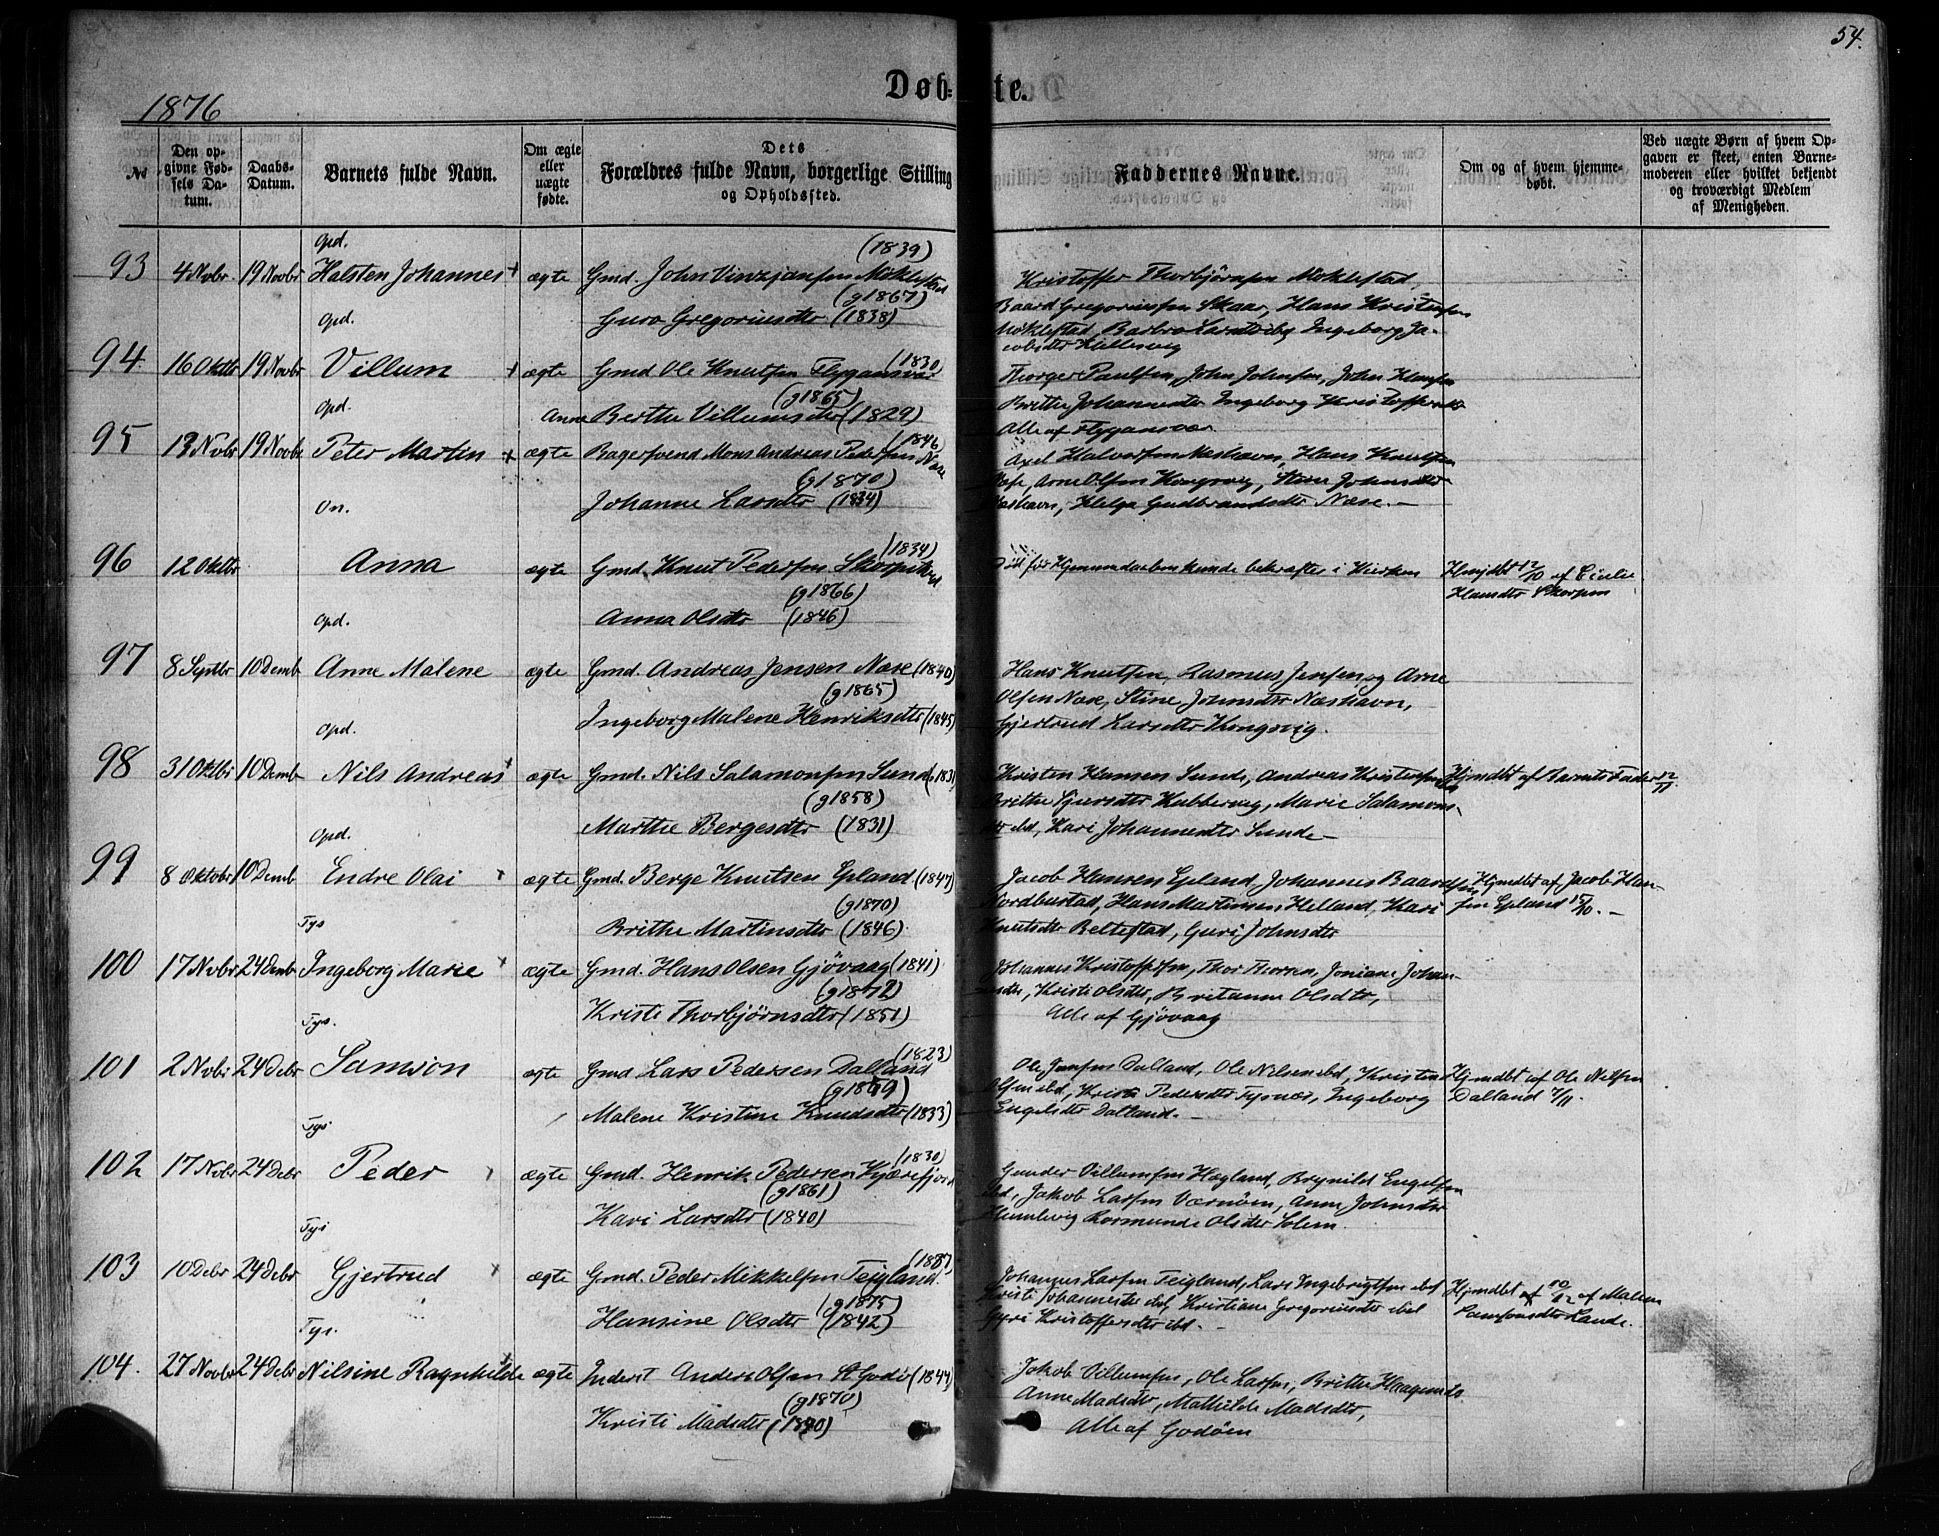 54.
Døb-te.
1876
No
Den opgivne Fødsels Datum.
Daabs-Datum.
Barnets fulde Navn.
Om ægte eller uægte fødte.
Dets Forældres fulde Navn, borgerlige Stilling og Opholdssted.
Faddernes Navne.
Om og af hvem hjemmedøbt.
Ved uægte Børn af hvem Opgaven er skeet, enten Barnemoderen eller hvilket bekjendt og troværdigt Medlem af Menigheden.
Opd. (1839)
93 4 Novbr 19 Novbr Halsten Johannes + ægte Gmd. John Møklestad Kristoffer Thorbjørnsen Møklestad
(g1867) Baard Gregoriussen Skaar, Hans Kristensen
Opd. Guro Gregoriusdtr (1838) Møklestad, Barbro Ingeborg Ja-
cobsdtr
94. 16 Oktbr 19 Novbr Villum + ægte Gmd Ole Knutsen Flygansvær (1830) Thorger Paulsen, John Johnsen, John Hansen
(g1865) Brithe Johannesdtr Ingeborg Kristoffersdtr
Opd. Anne Berthe Villumsdtr (1829) Alle af Flygansvær
95 13 Novbr 19 Novbr Peter Martin + ægte Bagersvend Mons Andreas Pedersen Næse (1846) Axel Halvorsen Næshavn, Hans Knutsen
(g1870) Næse, Arne Olsen Kongsvig, Stine Johnsdtr
On. Johanne Larsdtr (1834) Næshavn, Helga Gudbrandsdtr Næse. —
96 12 Oktbr Anna ægte Gmd. Knut Pedersen (1834) Død før Hjemmedaaben kunde bekræftes i Kirken Hmjdbt 12/10 af
(g1866) Hansdtr Skorpen
Opd. Anna Olsdtr (1846)
97 8 Septbr 10 Demb Anne Malene ægte Gmd. Andreas Jensen Næse (1840) Hans Knutsen, Rasmus Jensen og Arne
(g1865) Olsen Næse, Stine Johnsdtr Næshavn,
Opd. Ingeborg Malene Henriksdtr (1845) Gjertrud Larsdtr Kongsvig.
98 31 Oktbr 10 Demb Nils Andreas + ægte Gmd. Nils Salamonsen Sunde (1831) Kristen Hansen Sunde, Andreas Kristensen Hjmdbt af Barnets Fader 12/11
(g1858) Brithe Sjursdtr Kubbervig, Marie Salamons-
Opd. Marthe Bergesdtr (1831) dtr ibd, Kari Johannesdtr Sunde —
99 8 Oktobr 10 Demb Endre Olai ægte Gmd. Berge Knutsen Epland (1847) Jacob Hansen Epland, Johannes Baardsen Hjmdbt af Jacob Han-
(g1870) Nordbustad, Hans Martinsen Helland, Kari sen Epland 15/10. —
Tys Brithe Martinsdtr (1846) Knutsdtr Beltestad, Guri Johnsdtr
100 17 Novbr 24 Demb Ingeborg Marie ægte Gmd. Hans Olsen Gjøvaag (1841) Johannes Kristoffersen, Thor Thorsen, Joniane Johan-
(g1872) nesdtr, Kristi Olsdtr, Britanne Olsdtr,
Tys. Kristi Thorbjørnsdtr (1851) Alle af Gjøvaag
101 2 Novbr 24 Debr Samson ægte Gmd Lars Pedersen Dalland (1823) Ole Jensen Dalland, Ole Nilsen ibd, Kristen Hjmdbt af Ole Nilsen
(g1859) Olsen ibd, Kristi Pedersdtr Tysnæs, Ingeborg Dalland 7/11
Tys. Malene Kristine Knudsdtr (1833) Engelsdtr Dalland. —
102 17 Novbr 24 Debr Peder ægte Gmd. Henrik Pedersen (1830) Gunder Villumsen Hogland, Brynild Engelsen
(g1861) ibd, Jakob Larsen Værnøen, Anne Johnsdtr
Tys Kari Larsdtr (1840) Olsdtr Solem.
103 10 Debr 24 Debr Gjertrud ægte Gmd. Peder Mikkelsen Teigland Johannes Larsen Teigland, Lars Ingebrigtsen ibd Hjmdbt 10/12 af Malene
(g1875) Kristi Johannesdtr ibd, Kristiane Gregoriusdtr ibid Samsonsdtr Lande.
Tys. Hansine Olsdtr (1842) Gyri Kristoffersdtr ibd. —
104. 27 Novbr 24 Debr Nilsine Ragnhilde ægte Inderst Anders Olsen St Godø (1844) Jakob Villumsen, Ole Larsen, Brithe Haagensdtr
(g1870) Anne Madsdtr, Mathilde Madsdtr,
Kristi Madsdtr (1840) Alle af Godøen